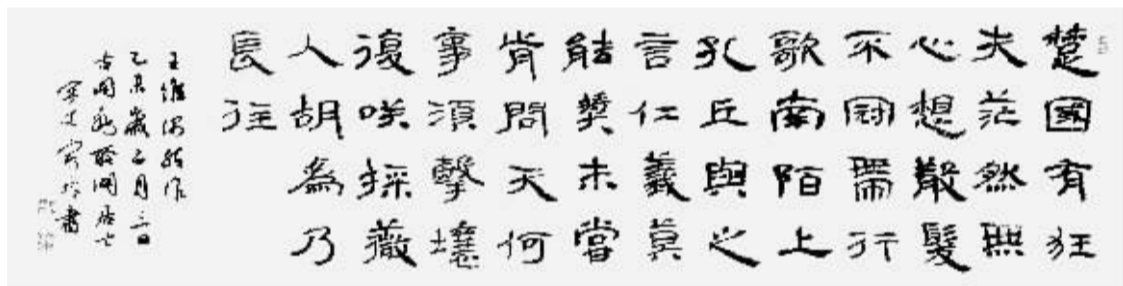 楚國有狂
夫茫然無
心想散髮
不冠帶行
歌南陌上
孔丘與之
言仁義莫
能獎未嘗
肯問天何
事須擊壤
復咲採薇
人胡為乃
長往
王維偶然作
歲 月三日
居士
書